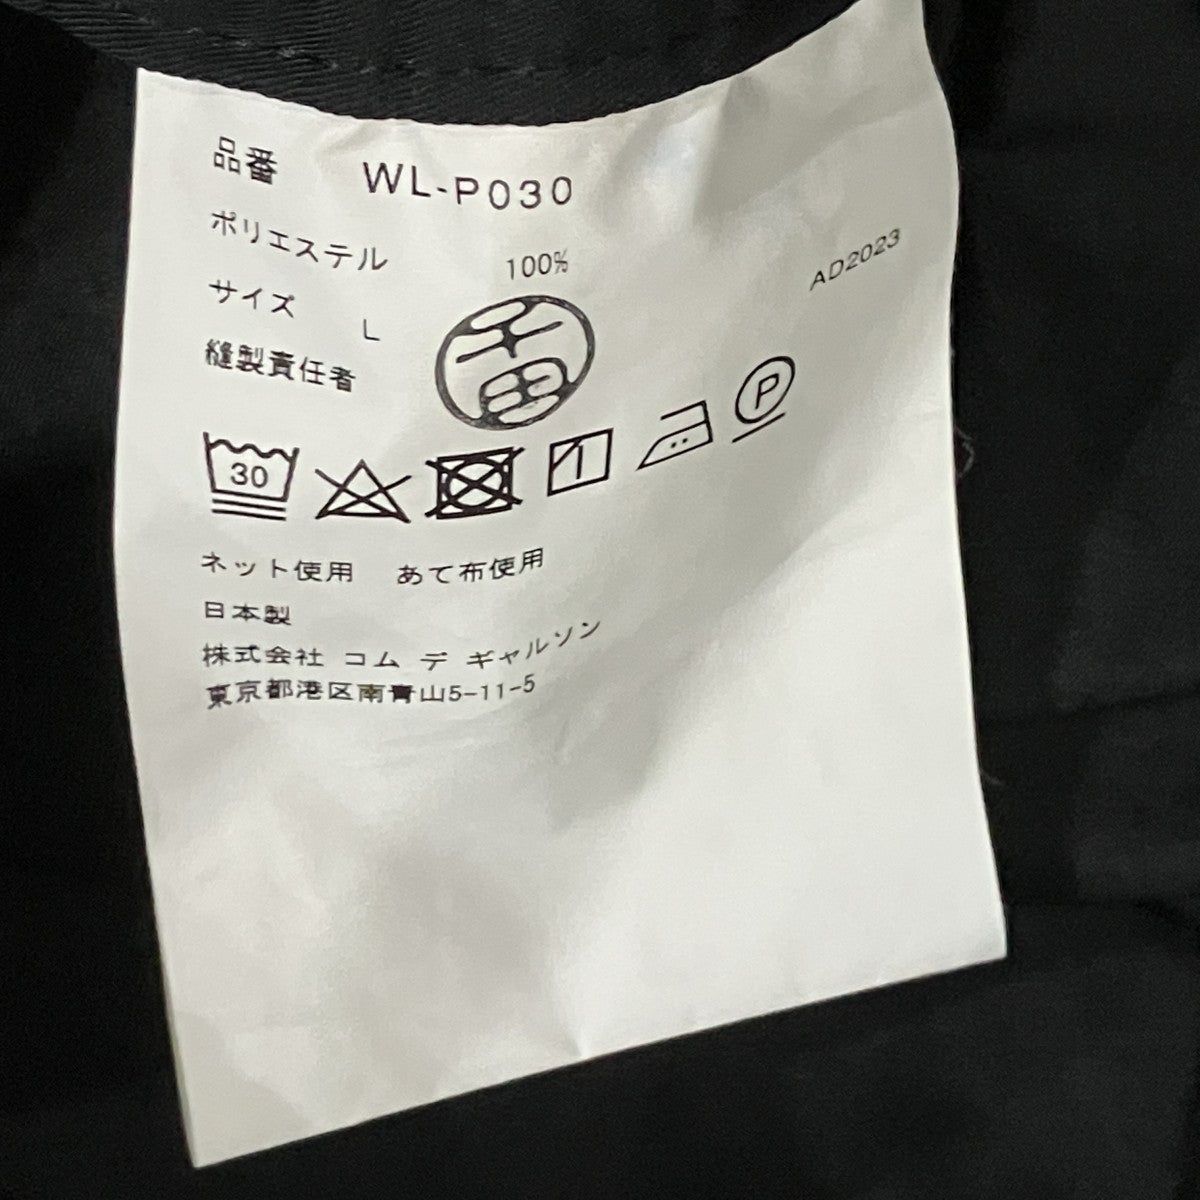 品番 WL-P030
ポリエステル 100%
AD2023
サイズ L
縫製責任者 千田
30
P
ネット使用 あて布使用
日本製
株式会社 コム デ ギャルソン
東京都港区南青山5-11-5